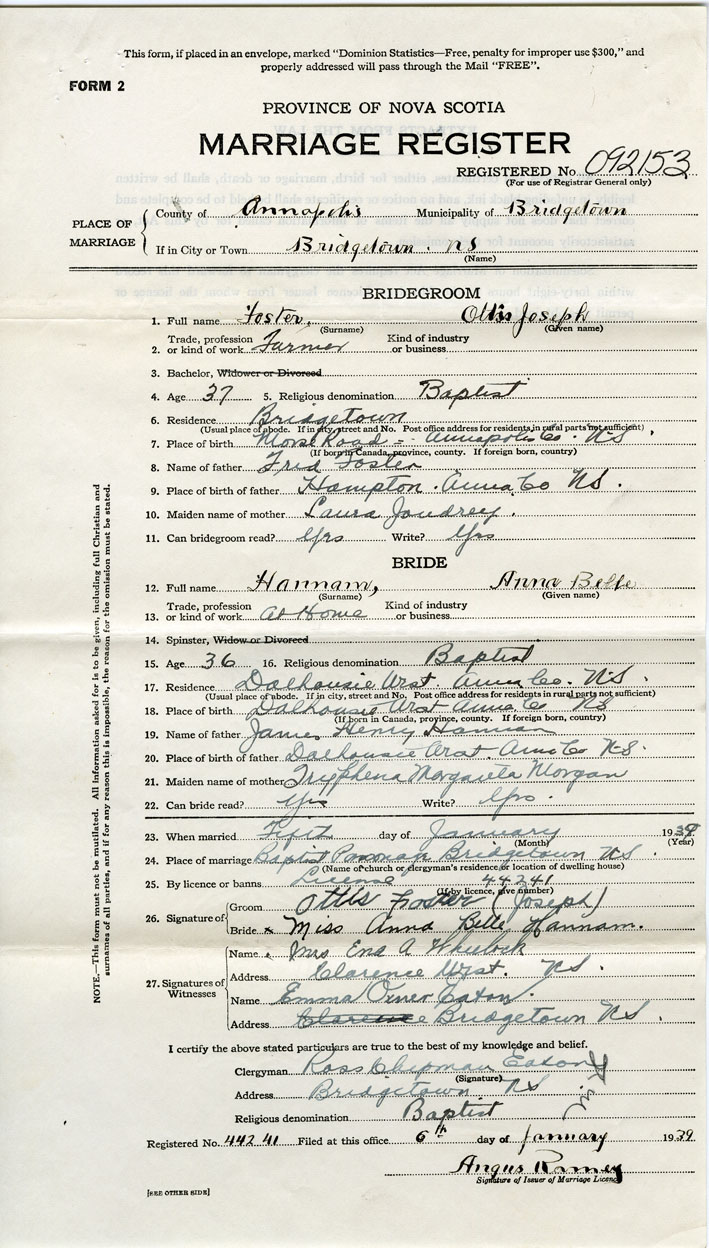 This form, if placed in an envelope, marked "Dominion Statistics—Free, penalty for improper use $300," and
properly addressed will pass through the Mail "FREE".
FORM 2
PROVINCE OF NOVA SCOTIA
MARRIAGE REGISTER
REGISTERED No. 092153
(For use of Registrar General only)
PLACE OF MARRIAGE
County of Annapolis Municipality of Bridgetown
If in City or Town Bridgetown. NS
(Name)
BRIDEGROOM
1. Full name Foster, Ottis Joseph
(Surname) (Given name)
2. Trade, profession or kind of work Farmer Kind of industry or business
3. Bachelor, Widower or Divorced
4. Age 37 5. Religious denomination Baptist
6. Residence Bridgetown
(Usual place of abode. If in city, street and No. Post office address for residents in rural parts not sufficient)
7. Place of birth Morse Road - Annapolis Co. NS
(If born in Canada, province, county. If foreign born, country)
8. Name of father Fred Foster
9. Place of birth of father Hampton. Anna. Co NS.
10. Maiden name of mother Laura Joudrey.
11. Can bridegroom read? Yes Write? Yes
BRIDE
12. Full name Hannam, Anna Belle
(Surname) (Given name)
13. Trade, profession or kind of work at Home Kind of industry or business
14. Spinster, Widow or Divorced
15. Age 36 16. Religious denomination Baptist
17. Residence Dalhousie West. Anna Co. NS.
(Usual place of abode. If in city, street and No. Post office address for residents in rural parts not sufficient)
18. Place of birth Dalhousie West Anna Co NS
(If born in Canada, province, county. If foreign born, country)
19. Name of father James Henry Hannam
20. Place of birth of father Dalhousie West. Anna Co NS.
21. Maiden name of mother Tryphena Morgan
22. Can bride read? Yes Write? Yes.
23. When married Fifth day of January 1939
(Month) (Year)
24. Place of marriage Baptist Parsonage Bridgetown NS.
(Name of church or clergyman's residence or location of dwelling house)
25. By licence or banns License 44241
(If by licence, give number)
26. Signature of
Groom Ottis Foster (Joseph)
Bride x Miss Anna Belle Hannam.
27. Signatures of Witnesses
Name Mrs A Wheelock
Address Clarence West. NS.
Name Emma Eaton.
Address Clarence Bridgetown NS.
I certify the above stated particulars are true to the best of my knowledge and belief.
Clergyman Ross Chipman Eaton
(Signature)
Address Bridgetown NS
Religious denomination Baptist
Registered No. 44241 Filed at this office 6th day of January 1939
Angus Ramey
Signature of Issuer of Marriage Licence
[SEE OTHER SIDE]
NOTE.—This form must not be mutilated. All information asked for is to be given, including full Christian and
surnames of all parties, and if for any reason this is impossible, the reason for the omission must be stated.